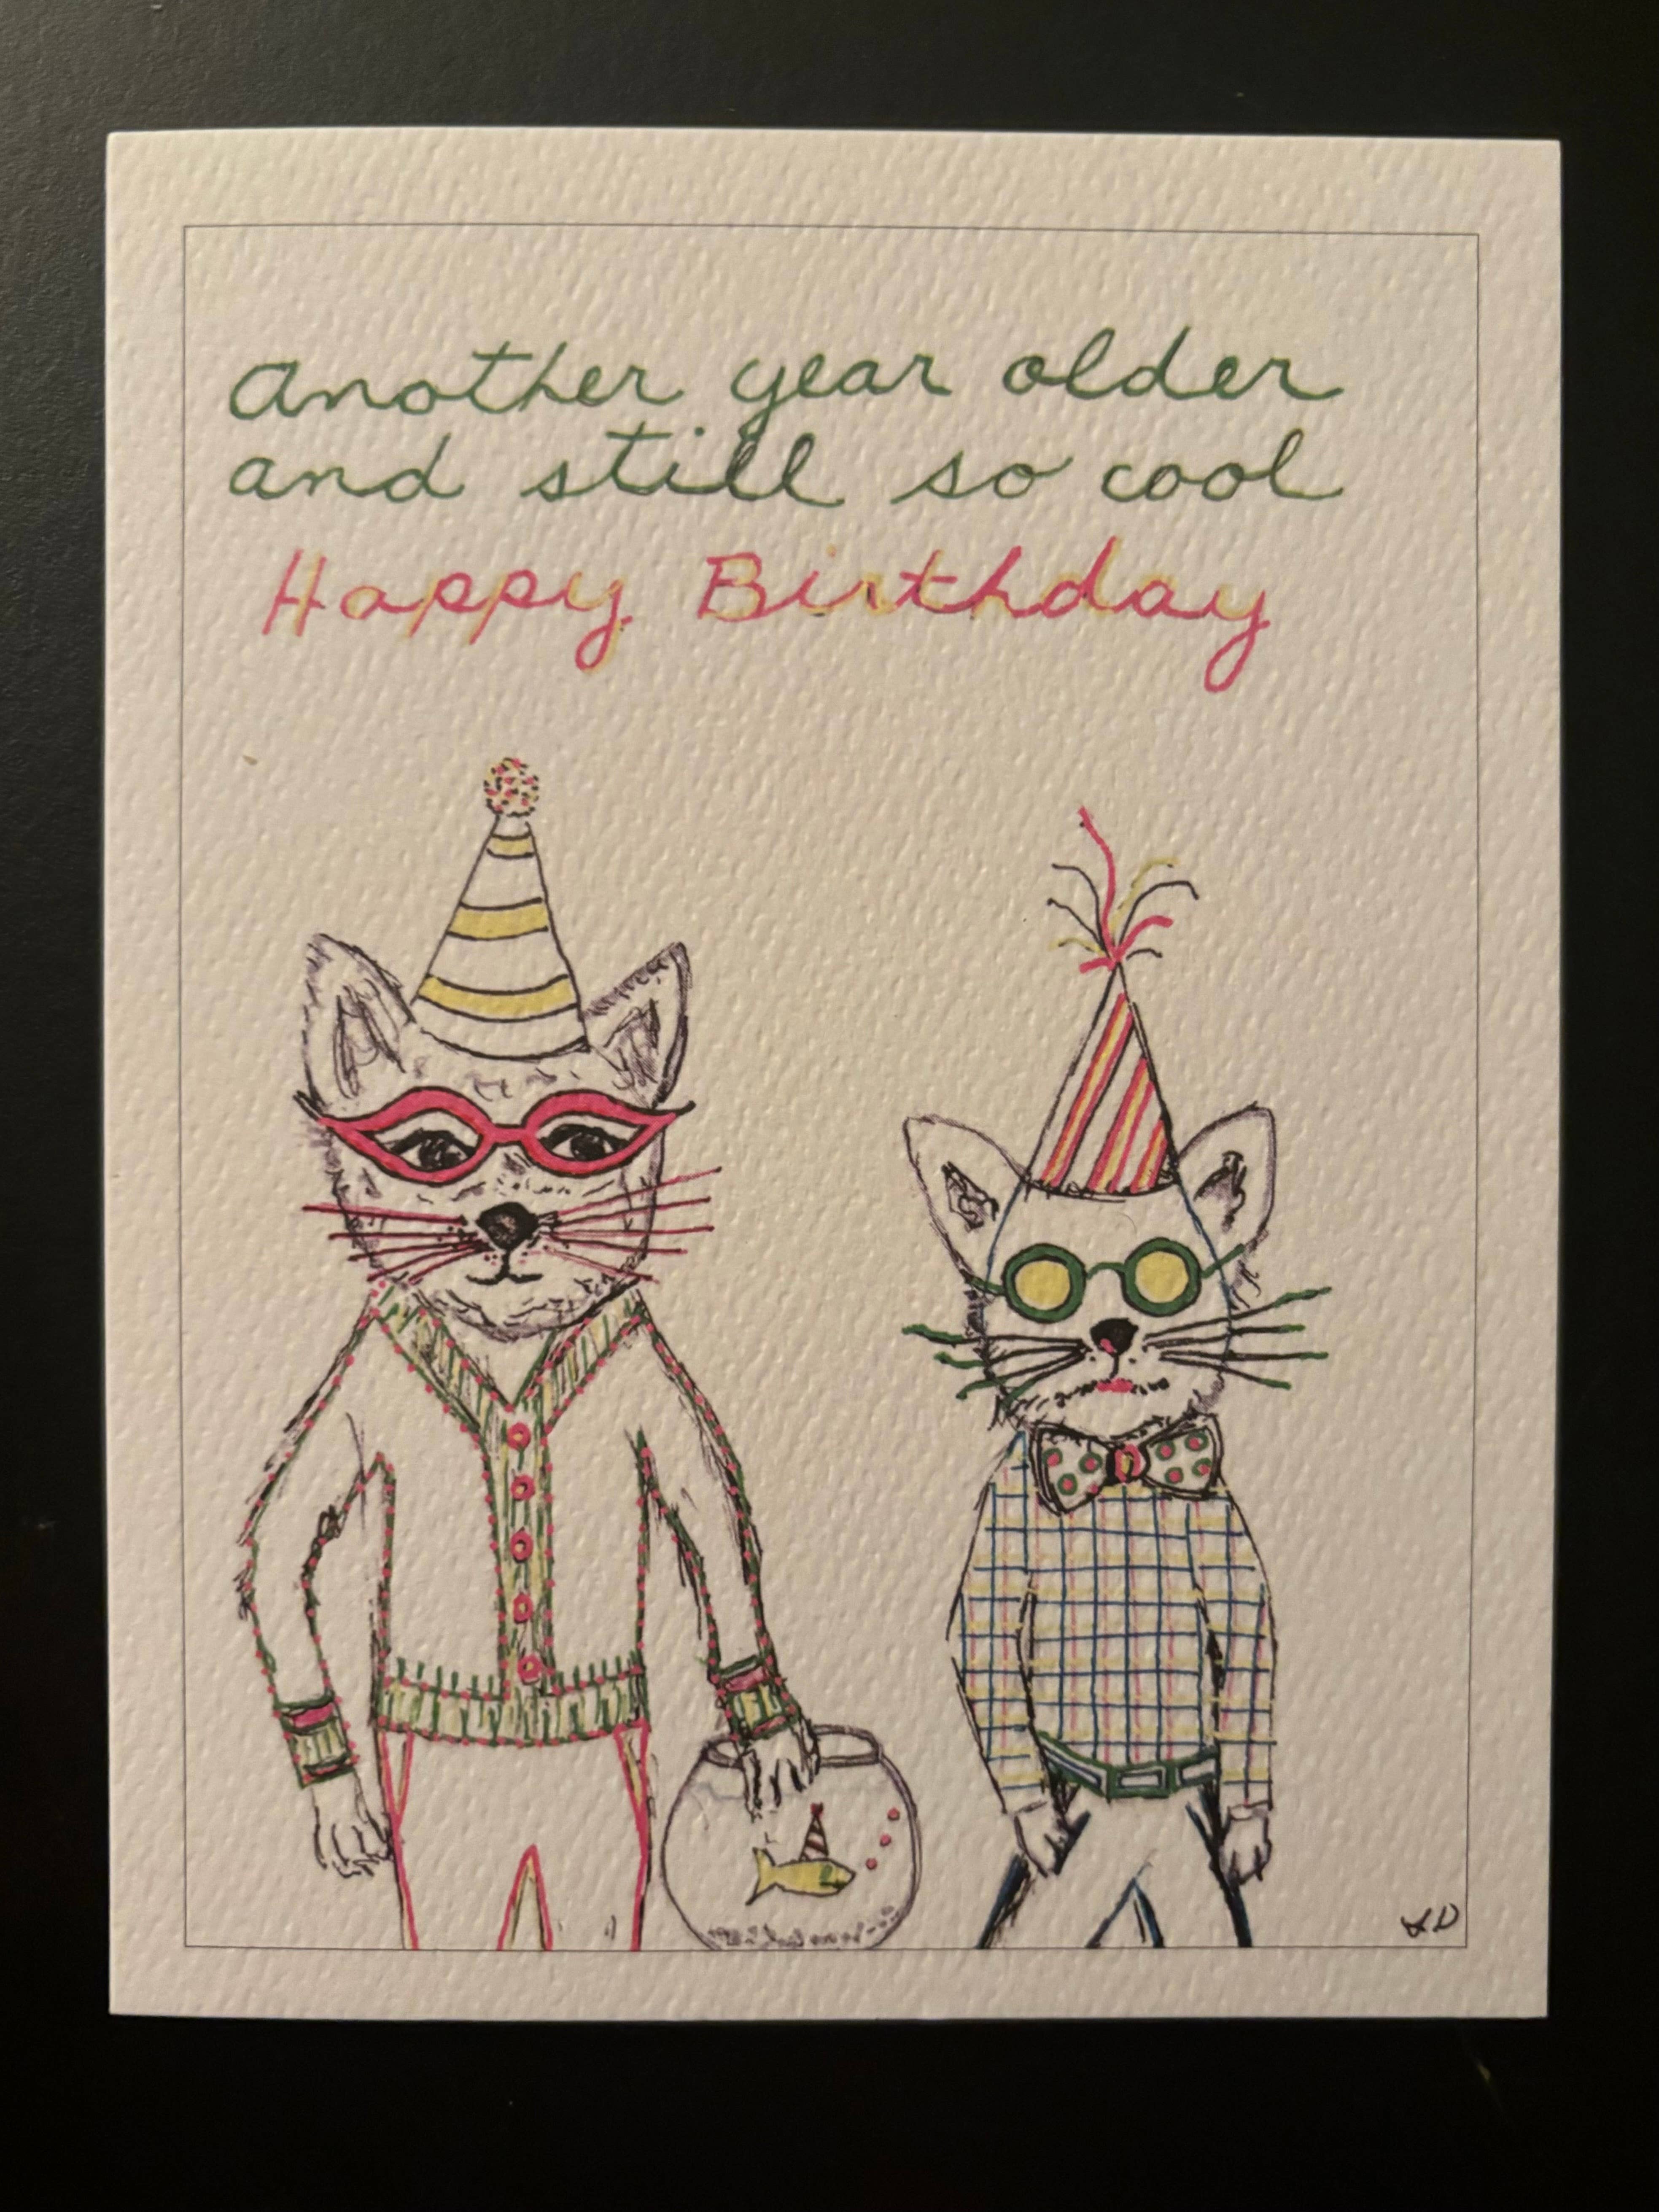 Another year older
and still so cool
Happy Birthday